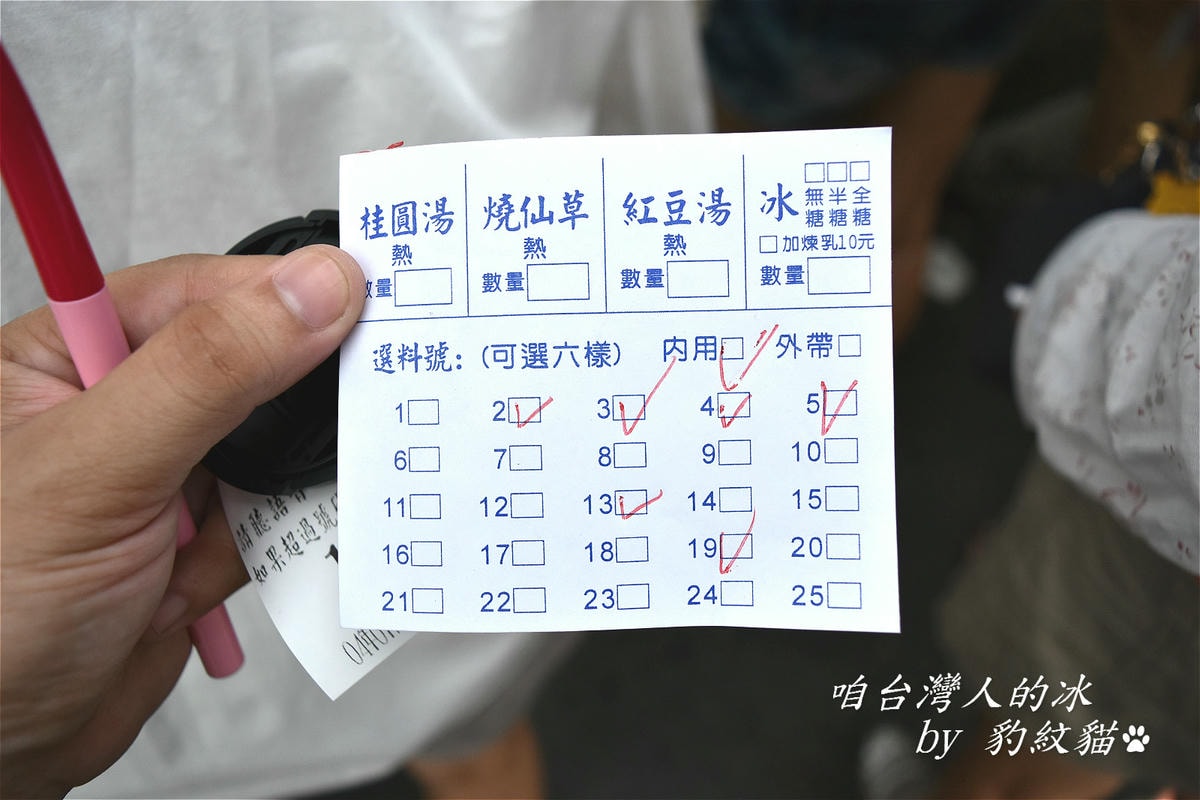 桂圓湯 燒仙草 紅豆湯 冰 無糖 半糖 全糖
熱 熱 熱 加煉乳10元
數量 數量 數量 數量
選料號：(可選六樣) 內用 外帶
1 2 3 4 5
6 7 8 9 10
11 12 13 14 15
16 17 18 19 20
21 22 23 24 25
請聽語音
如果超過號
咱台灣人的冰
by 豹紋貓